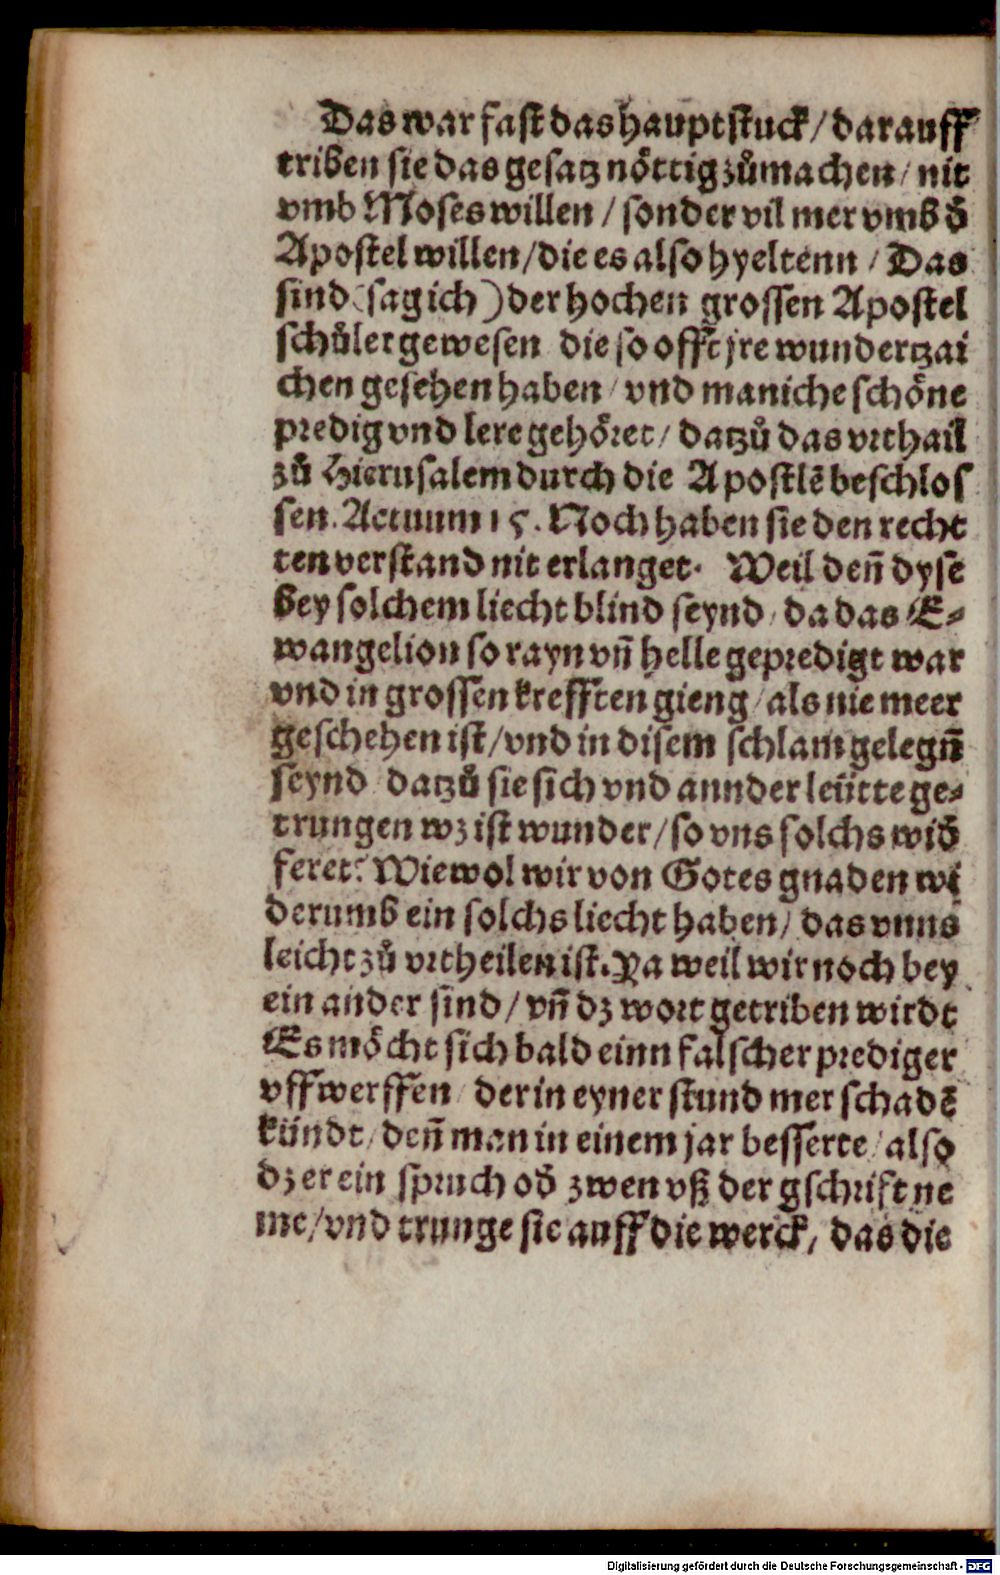 Das war fast das hauptstuck / darauff
triben sie das gesatz nöttig zůmachen / nit
vmb Moses willen / sonder vil mer vmb d̄
Apostel willen / die es also hyeltenn / Das
sind (sag ich) der hochen grossen Apostel
schůler gewesen die so offt jre wundertzai
chen gesehen haben / vnd maniche schöne
predig vnd lere gehöret / datzů das vrthail
zů Hierusalem durch die Apostlē beschlos
sen. Actuum 15. Noch haben sie den recht
ten verstand nit erlanget. Weil deñ dyse
bey solchem liecht blind seynd / da das E⸗
wangelion so rayn vñ helle gepredigt war
vnd in grossen krefften gieng / als nie meer
geschehen ist / vnd in disem schlam gelegñ
seynd datzů sie sich vnd annder leütte ge⸗
trungen wz ist wunder / so vns solchs wid̄
feret? Wiewol wir von Gotes gnaden wi
derumb ein solchs liecht haben / das vnns
leicht zů vrtheilen ist. Ya weil wir noch bey
ein ander sind / vñ dz wort getriben wirdt
Es möcht sich bald einn falscher prediger
vffwerffen / der in eyner stund mer schadē
kündt / deñ man in einem jar besserte / also
dz er ein spruch od̄ zwen vß der gschrift ne
me / vnd trunge sie auff die werck / das die
Digitalisierung gefördert durch die Deutsche Forschungsgemeinschaft - DFG